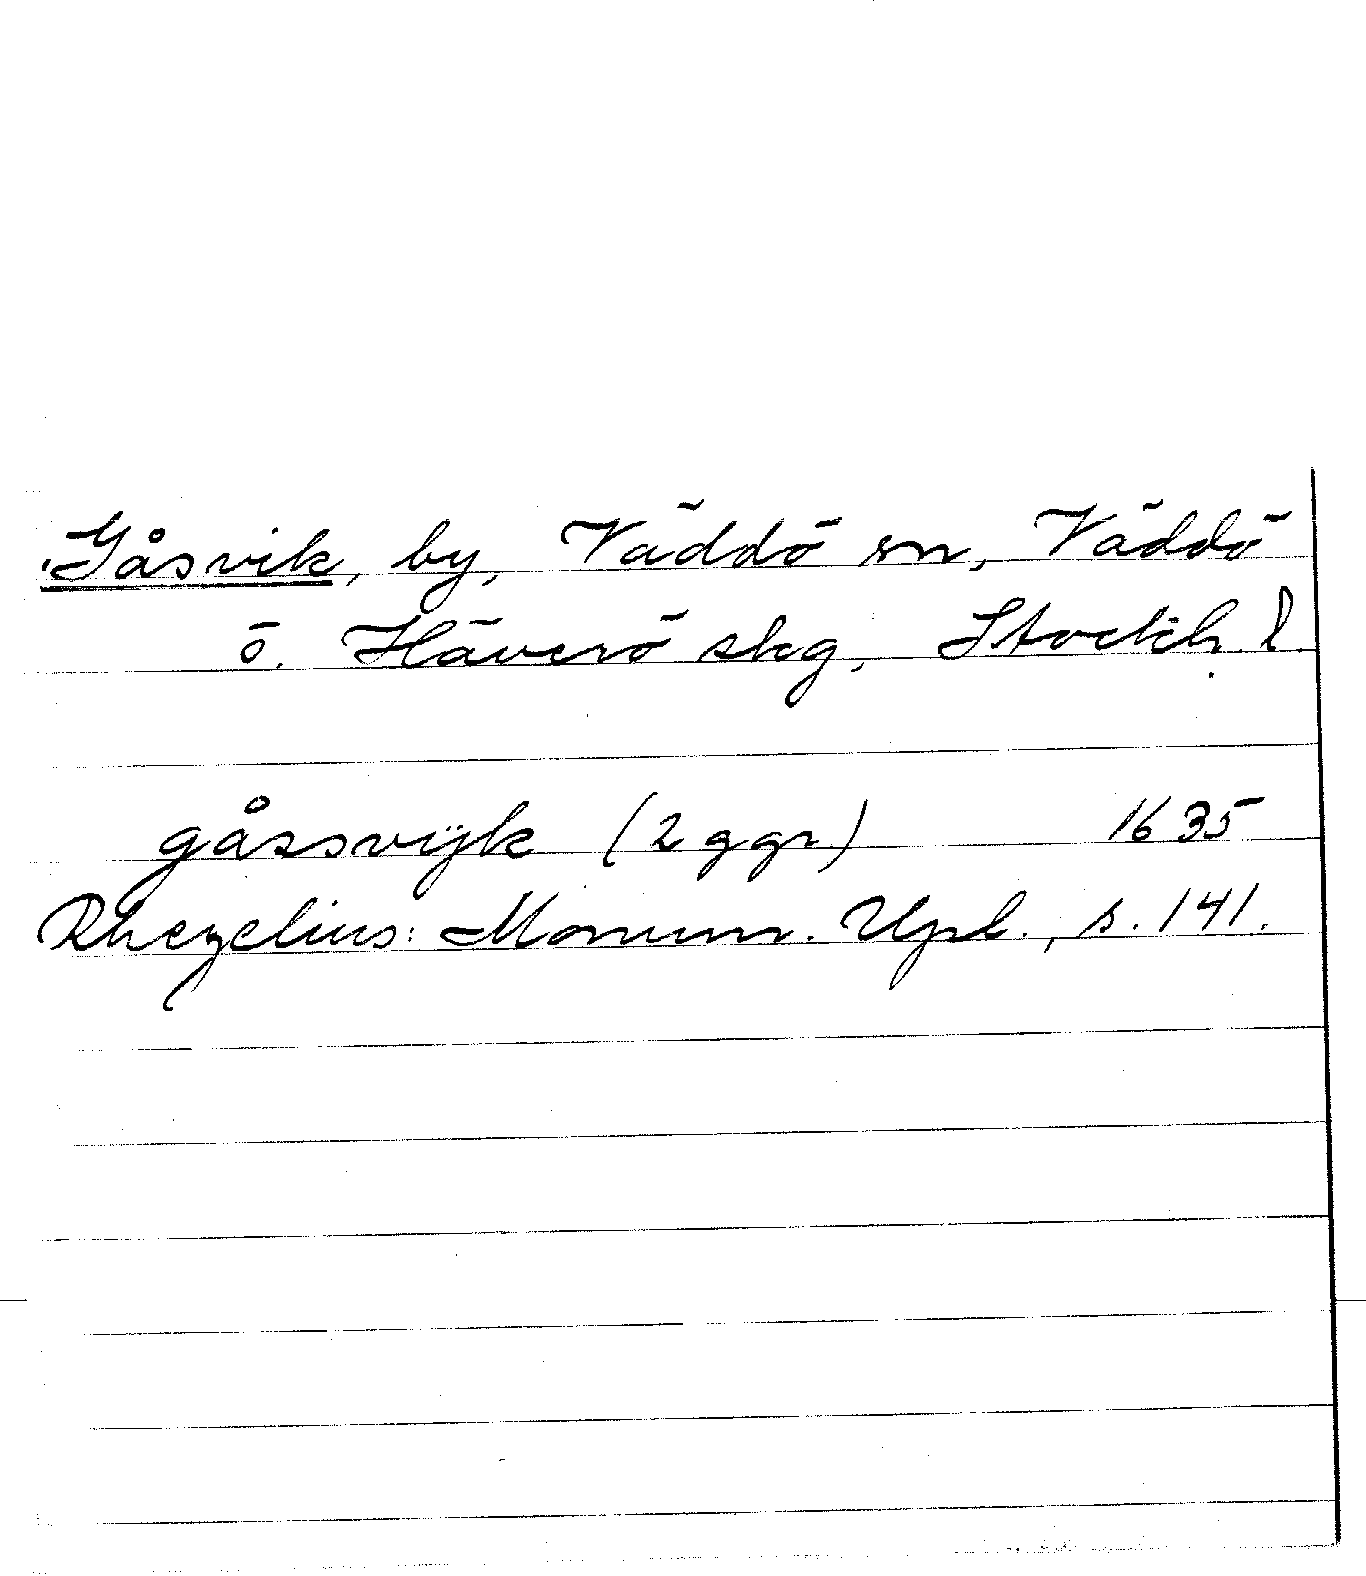 Gåsvik, by, Väddö sn, Väddö
o. Häverö skg, Stockh. l.
gåssvijk (2 ggr) 1635
Rhezelius: Monum. Upl., s. 141.